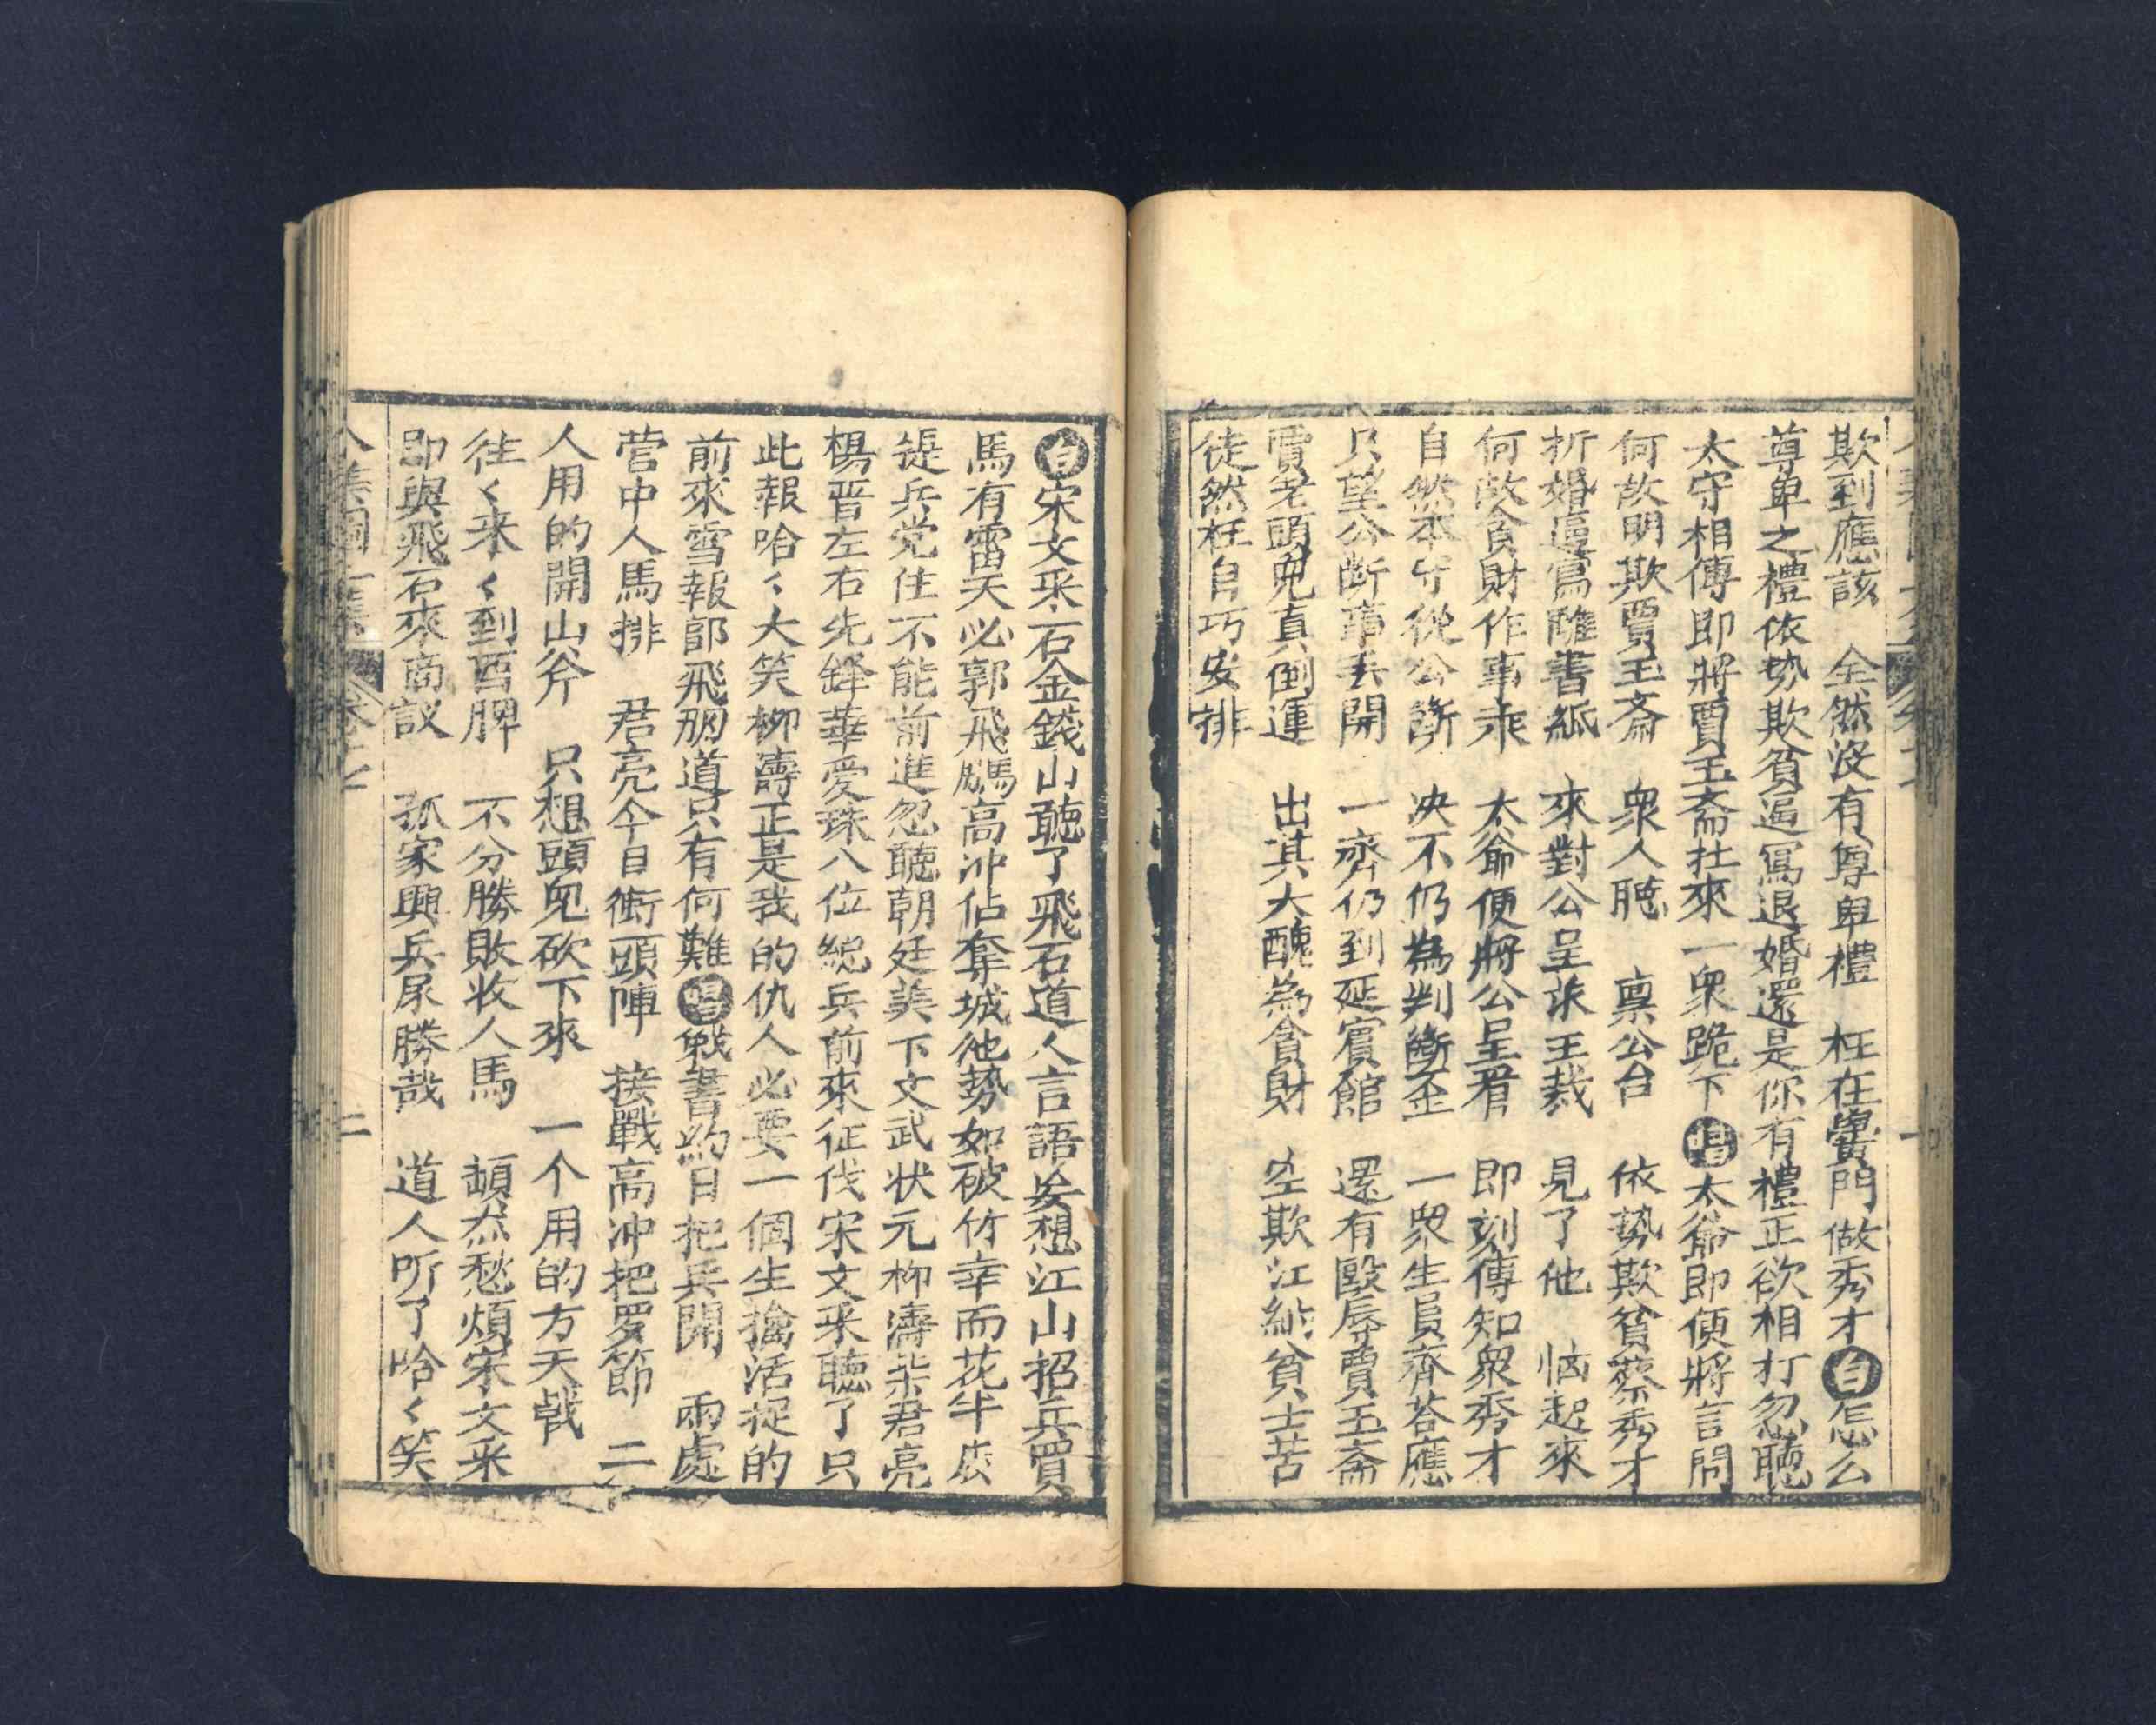 欺到應該　全然没有尊卑禮　枉在黌門做秀才 白 怎么
尊卑之禮依势欺貧逼寫退婚還是你有禮正欲相打忽聽
太守相傳即將賈玉斋扯來一衆跪下 唱 太爺即便將言問
何故明欺賈玉斋　衆人聽　禀公台　依势欺貧蔡秀才
折婚逼寫離書紙　來對公呈求主裁　見了他　恼起來
何故貪財作事乖　太爺便將公呈看　即刻傳知衆秀才
自然本守從公斷　决不仍為判斷歪　一衆生員齊荅應
只望公断事丢開　一齊仍到延賓館　還有毆辱賈玉斋
賈老頭兒真倒運　出其大醜為貪財　空欺江 貧士苦
徒然枉自巧安排
白 宋文采石金錢山聽了飛石道人言語妄想江山招兵買
馬有雷天必郭飛鵰高冲佔奪城池势如破竹幸而花年
提兵党住不能前進忽聽朝廷美下文武状元柳濤柴君亮
楊晋左右先鋒華愛珠八位総兵前來征伐宋文采聽了只
此報哈〻大笑柳濤正是我的仇人必要一個生擒活捉的
前來雪報郎飛朋道只有何難 唱 戦書約日把兵開　兩處
营中人馬排　君亮今日衝頭陣　接戰高冲把罗節　二
人用的開山斧　只想頭兒砍下來　一个用的方天戟
往〻来〻到酉牌　不分勝敗收人馬　頡忝愁煩宋文采
即與飛石來商議　孤家興兵屎勝哉　道人听了哈〻笑
二